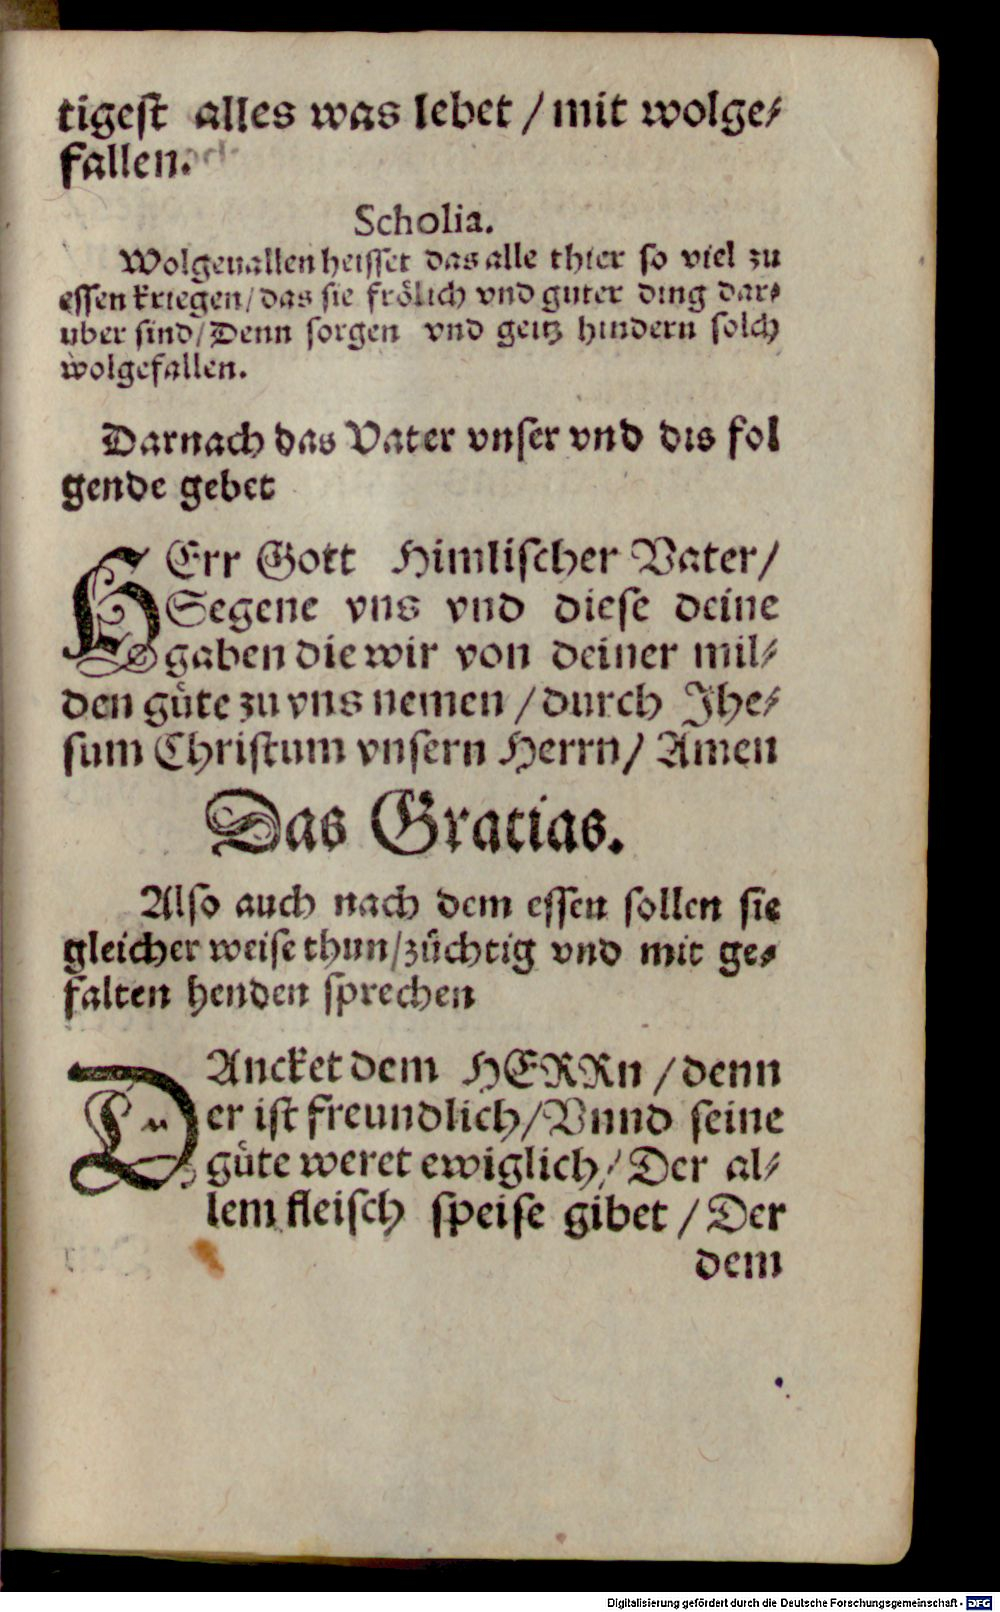 tigest alles was lebet / mit wolge-
fallen.
Scholia.
Wolgeuallen heisset das alle thier so viel zu
essen kriegen / das sie frölich vnd guter ding dar-
uber sind / Denn sorgen vnd geitz hindern solch
wolgefallen.
Darnach das Vater vnser vnd dis fol
gende gebet
HErr Gott Himlischer Vater /
Segene vns vnd diese deine
gaben die wir von deiner mil-
den güte zu vns nemen / durch Jhe-
sum Christum vnsern Herrn / Amen
Das Gratias.
Also auch nach dem essen sollen sie
gleicher weise thun / züchtig vnd mit ge-
falten henden sprechen
DAncket dem HERRn / denn
er ist freundlich / Vnnd seine
güte weret ewiglich / Der al-
lem fleisch speise gibet / Der
dem
Digitalisierung gefördert durch die Deutsche Forschungsgemeinschaft - DFG